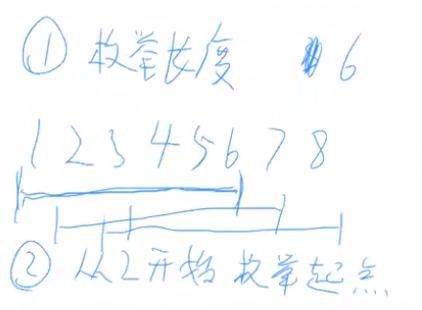 ① 枚举长度 6
1 2 3 4 5 6 7 8
② 从2开始 枚举起点